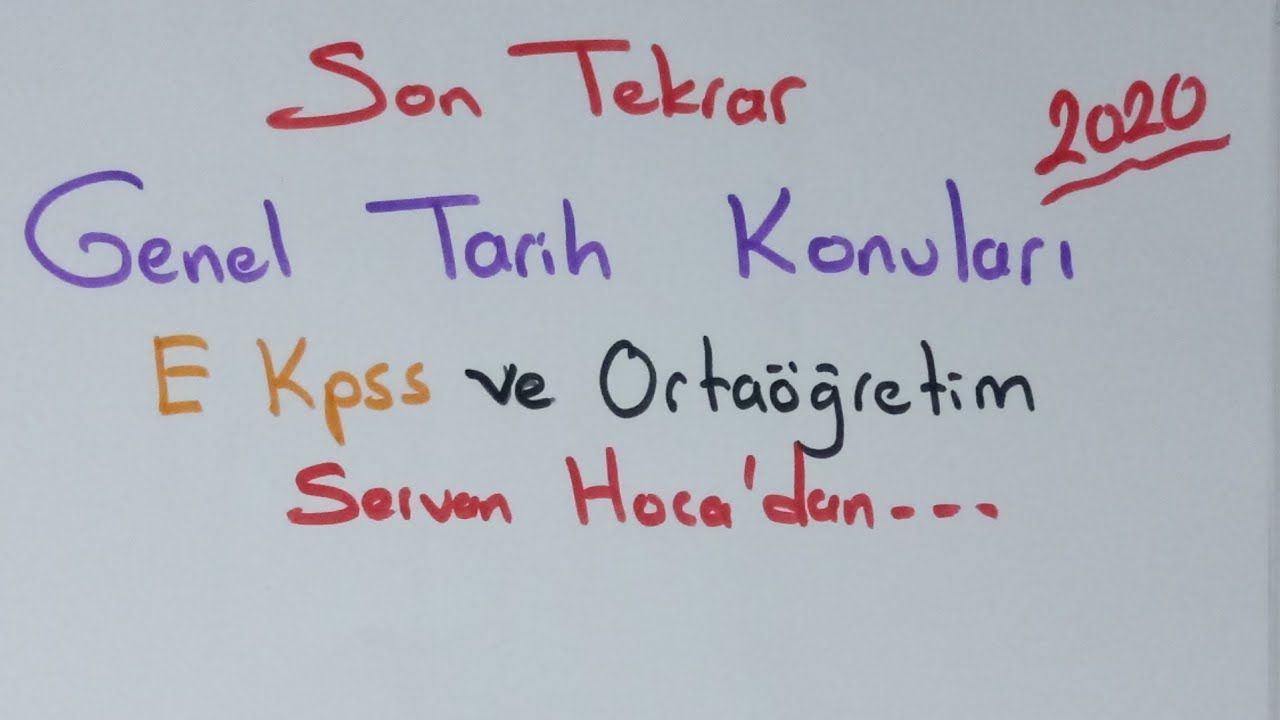 Son Tekrar
2020
Genel Tarih Konuları
E Kpss ve Ortaöğretim
Servan Hoca'dan---